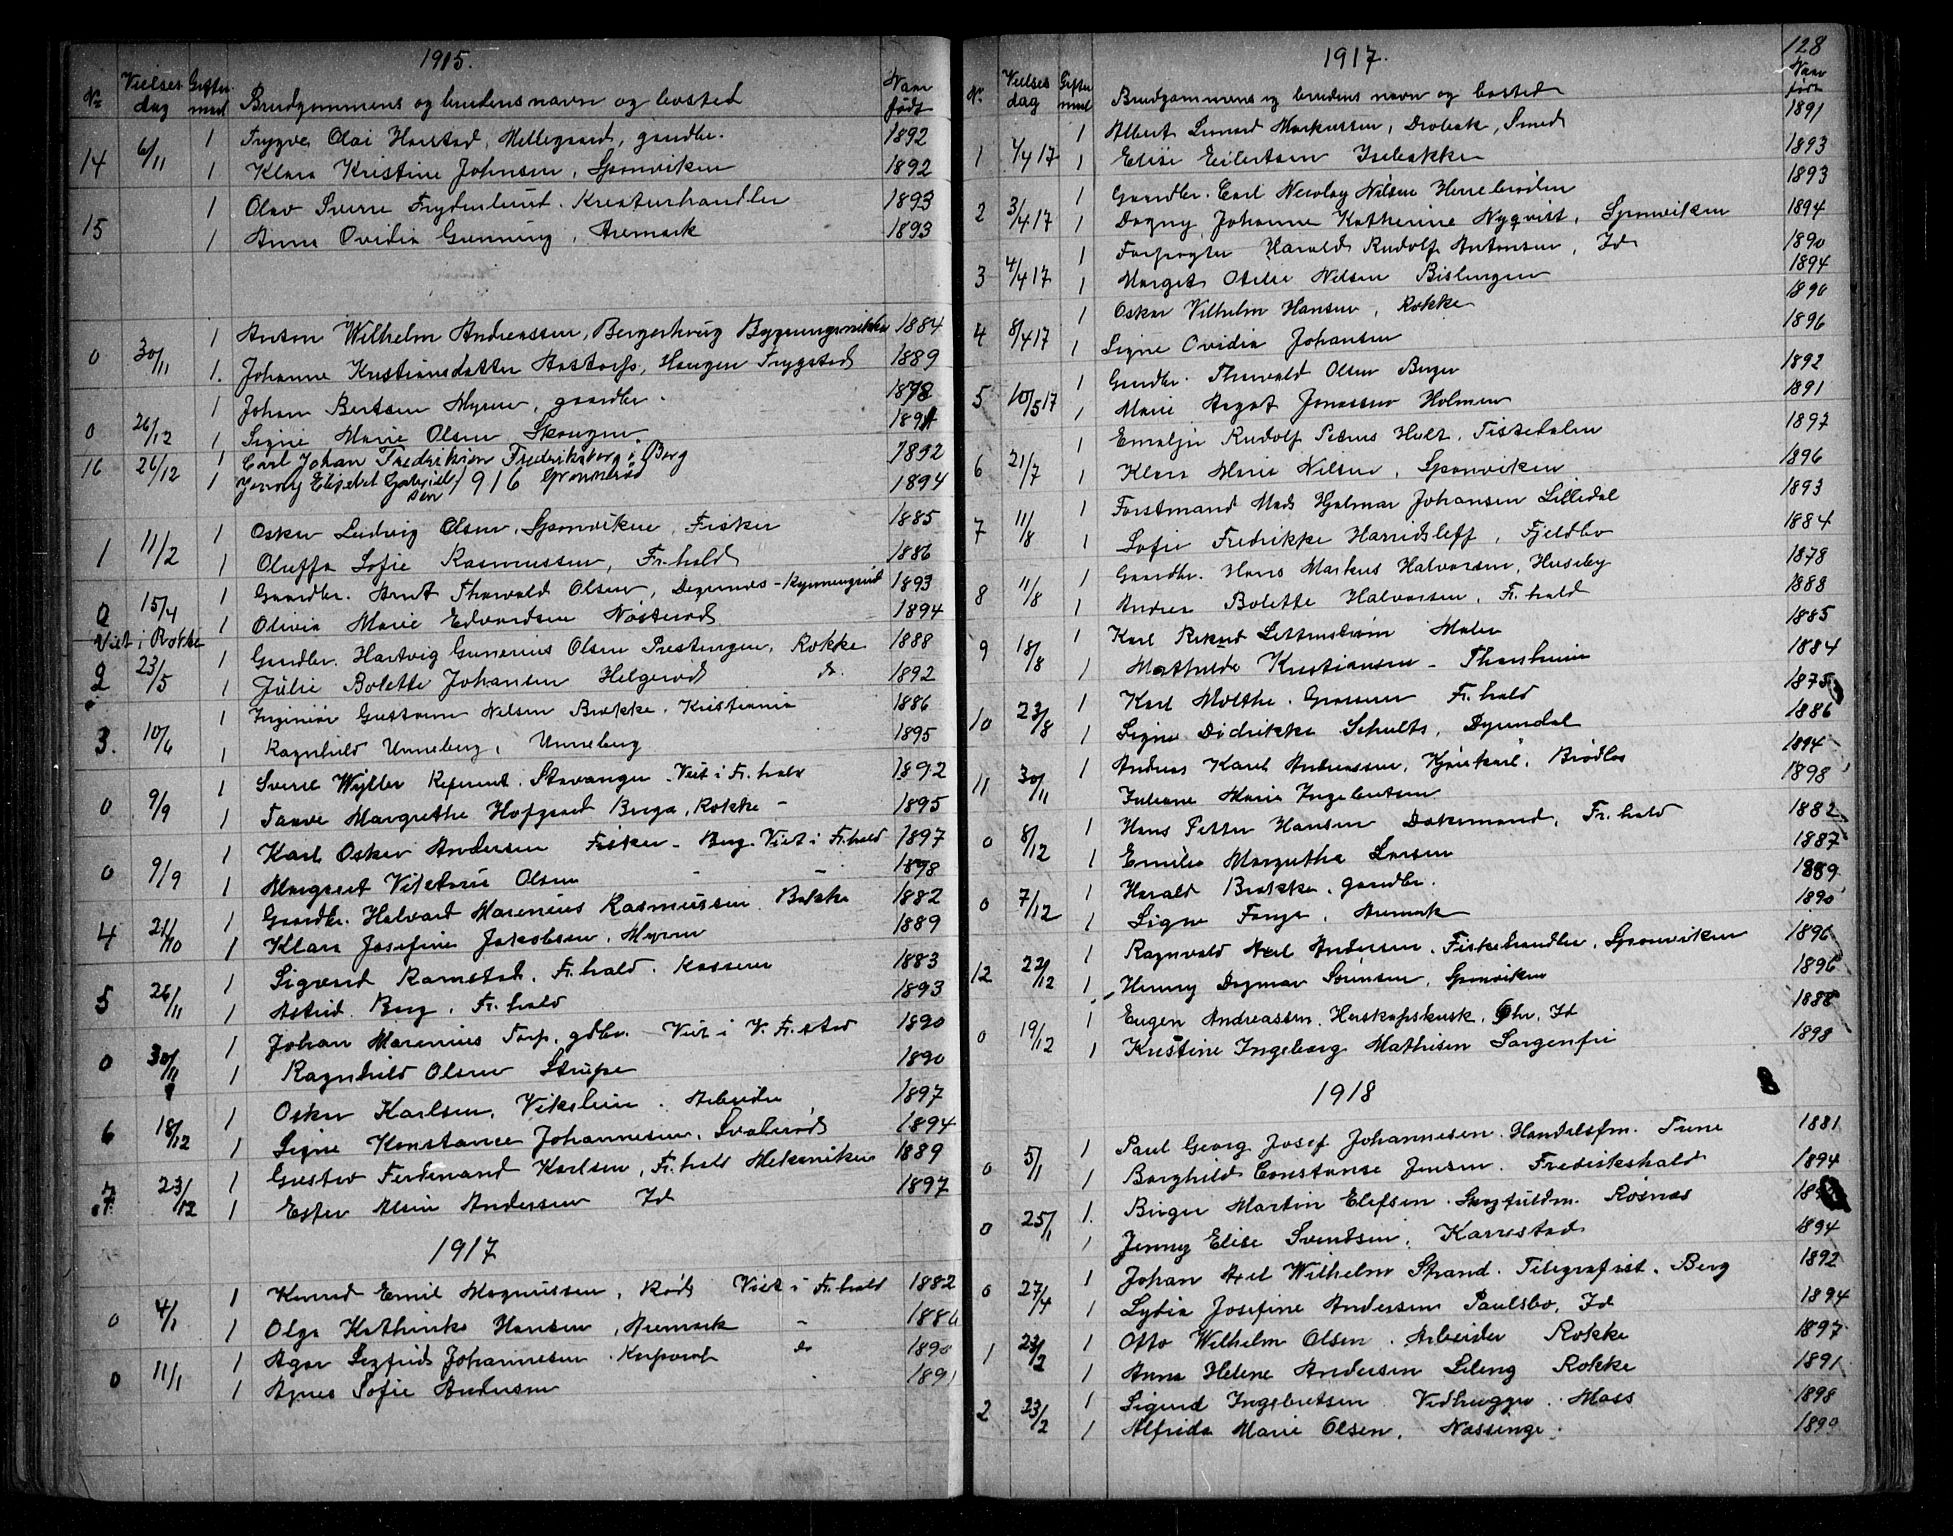 1915.
Nr Vielses dag Gifter med Brudgommens og brudens navn og bosted Naar født
6/11 1 Trygve Olai Harstad, Hellegaard, gaardbr. 1892
14 1 Klara Kristine Johnsen, Sponviken 1892
1 Olav Sverre Frydenlund. Kreaturhandler 1893
15 1 Anna Ovidia Gunning, Aremark 1893
1 Anton Wilhelm Andreassen, Bergerkrug Bygningssnikker 1884
0 30/11 1. Johanne Kristiansdatter Aastorp, Haugen Trygstad 1889
1 Johan Bertsen Myrene, gaardbr. 1878
0 26/12 Signe Marie Olsen Skaugen. 1891
16 26/12 1 Carl Johan Fredriksion Fredriksborg i Berg 1892
1 Jenny Elisebet Gabrielsen 1916 Grønnerød 1894
1 Oskar Ludvig Olsen, Sponviken, Fisker 1885
1 11/2 1 Oluffa Sofie Rasmussen, Fr.hald 1886
1 Gaardbr. Arnt Thorvald Olsen, Degernes - Kynnengrud 1893
0 15/4 1 Olivia Marie Edvardsen Nøsterød 1894
Viet i Rokke 1 Gardbr. Hartvig Gunerius Olsen Prestengen, Rokke 1888
2 23/5 1 Julie Bolette Johansen Helgerød do. 1892
1 Ingeniør Gustav Nilsen Brække. Kristiania 1886
3. 10/6 1 Ragnhild Unneberg, Unneberg 1895
1 Sverre Wyller Referent. Stavanger. Viet i Fr.hald 1892
0 9/9 1 Tanve Margrethe Hofgaard Berga, Rokke - 1895
1 Karl Oskar Andersen Fisker - Berg. Viet i Fr.hald 1897
0 9/9 1 Margaret Viktoria Olsen - 1898
1 Gaardbr. Halvard Marenius Rasmussen Bakke 1882
4 21/10 1 Klara Josefine Jakobsen, Myrene 1889
1 Sigvard Ramstad. Fr.hald. Kasserer 1883
5 26/11 1 Astrid Berg. Fr.hald 1893
1 Johan Marenius Torp, gdbr. Viet i V. Fr.stad 1890
0 30/11 1 Ragnhild Olsen Strupe 1890
1 Oskar Karlsen, Viksletten. Arbeider 1897
6 18/12 1 Signe Konstance Johannesen, Svalerød 1894
1 Gustav Ferdinand Karlsen, Fr.hald Mekaniker 1889
7. 23/12 1 Ester Alsine Andersen Id 1897
1917
1 Konrad Emil Magnussen, Rød. Viet i Fr.hald 1882
0 4/1 1 Olga Kathinka Hansen, Aremark - 1886
1 Agar Sigfrid Johannesen. Korporal do 1890
0 11/1 1 Agnes Sofie Andersen 1891
1917. 128
Nr. Vielses dag Gifter med Brudgommens og brudens navn og bosted Naar født
1 Albert Leonard Markussen, Drøbak, Smed 1891
1 1/4 17 1 Elise Eilertsen Isebakke 1893
1 Gaardbr. Carl Nicolay Nilsen Herrebrøden 1893
2 3/4 17 1 Dagny Johanne Katherine Nyqvist, Sponviken 1894
1 Forpagter Harald Rudolf Antonsen, Id 1890
3 4/4 17 1 Margit Otelie Nilsen Bislingen 1894
1 Oskar Vilhelm Hansen, Rokke 1890
4 8/4 17 1 Signe Ovidia Johansen 1896
1 Gardbr. Thorvald Olsen Berger 1892
5 10/5 17 1 Marie Aagot Jonassen Holmen 1891
1 Emalji Rudolf Petrus Hult, Tistedalen 1897
6 21/7 1 Klara Marie Nilsen, Sponviken 1896
1 Forstmand Mads Hjalmar Johansen Lilledal 1893
7 11/8 1 Sofie Fredrikke Harridsleff, Fjeldbo 1884
1 Gaardbr. Hans Markus Halvorsen, Huseby 1878
8 11/8 1 Andrea Bolette Halvorsen, Fr.hald 1888
1 Karl Rikard Settenstrøm Maler 1885
9 18/8 1 Mathilde Kristiansen - Thorsheim 1884
1 Karl Molthe. Grossen Fr.hald 1875
10 23/8 1 Signe Didrikke Schults, Dyrendal 1886
1 Andreas Karel Andreassen, Kjørekarl. Brødløs 1894
11 30/11 Juliane Marie Ingebretsen 1898
1 Hans Petter Hansen Dokkmand, Fr.hald 1882
0 8/12 1 Emilie Margretha Larsen 1887
1 Harald Brække, gardbr. 1889
0 7/12 1 Signe Tange, Aremark 1890
1 Ragnvald Axel Andersen, Fiskehandler, Sponviken 1896
12 22/12 1 Henny Dagmar Sørensen, Sponviken 1896
1 Eugen Andreassen. Herskapskusk, Id 1888
0 19/12 1 Kristine Ingeborg Mathisen Sorgenfri 1898
1918
1 Paul Georg Josef Johannesen. Handelsfm. Tune 1881
0 5/1 1 Borghild Constanse Jensen. Fredrikshald 1894
1. Birger Martin Elefsen. Røsnæs
0 25/1 1 Jenny Elise Svendsen. Karrestad 1894
1 Johan Axel Wilhelm Strand. Telegrafist. Berg 1892
0 27/4 1 Lydia Josefine Andersen Paulsbo, Id 1894
1 Otto Wilhelm Olsen. Arbeider Rokke 1897
1 23/2 1 Anna Helene Andersen Lileng Rokke 1891
1 Sigurd Ingebretsen Vedhugger. Moss 1898
2 23/2 1 Alfrida Marie Olsen, Næssinge. 1899